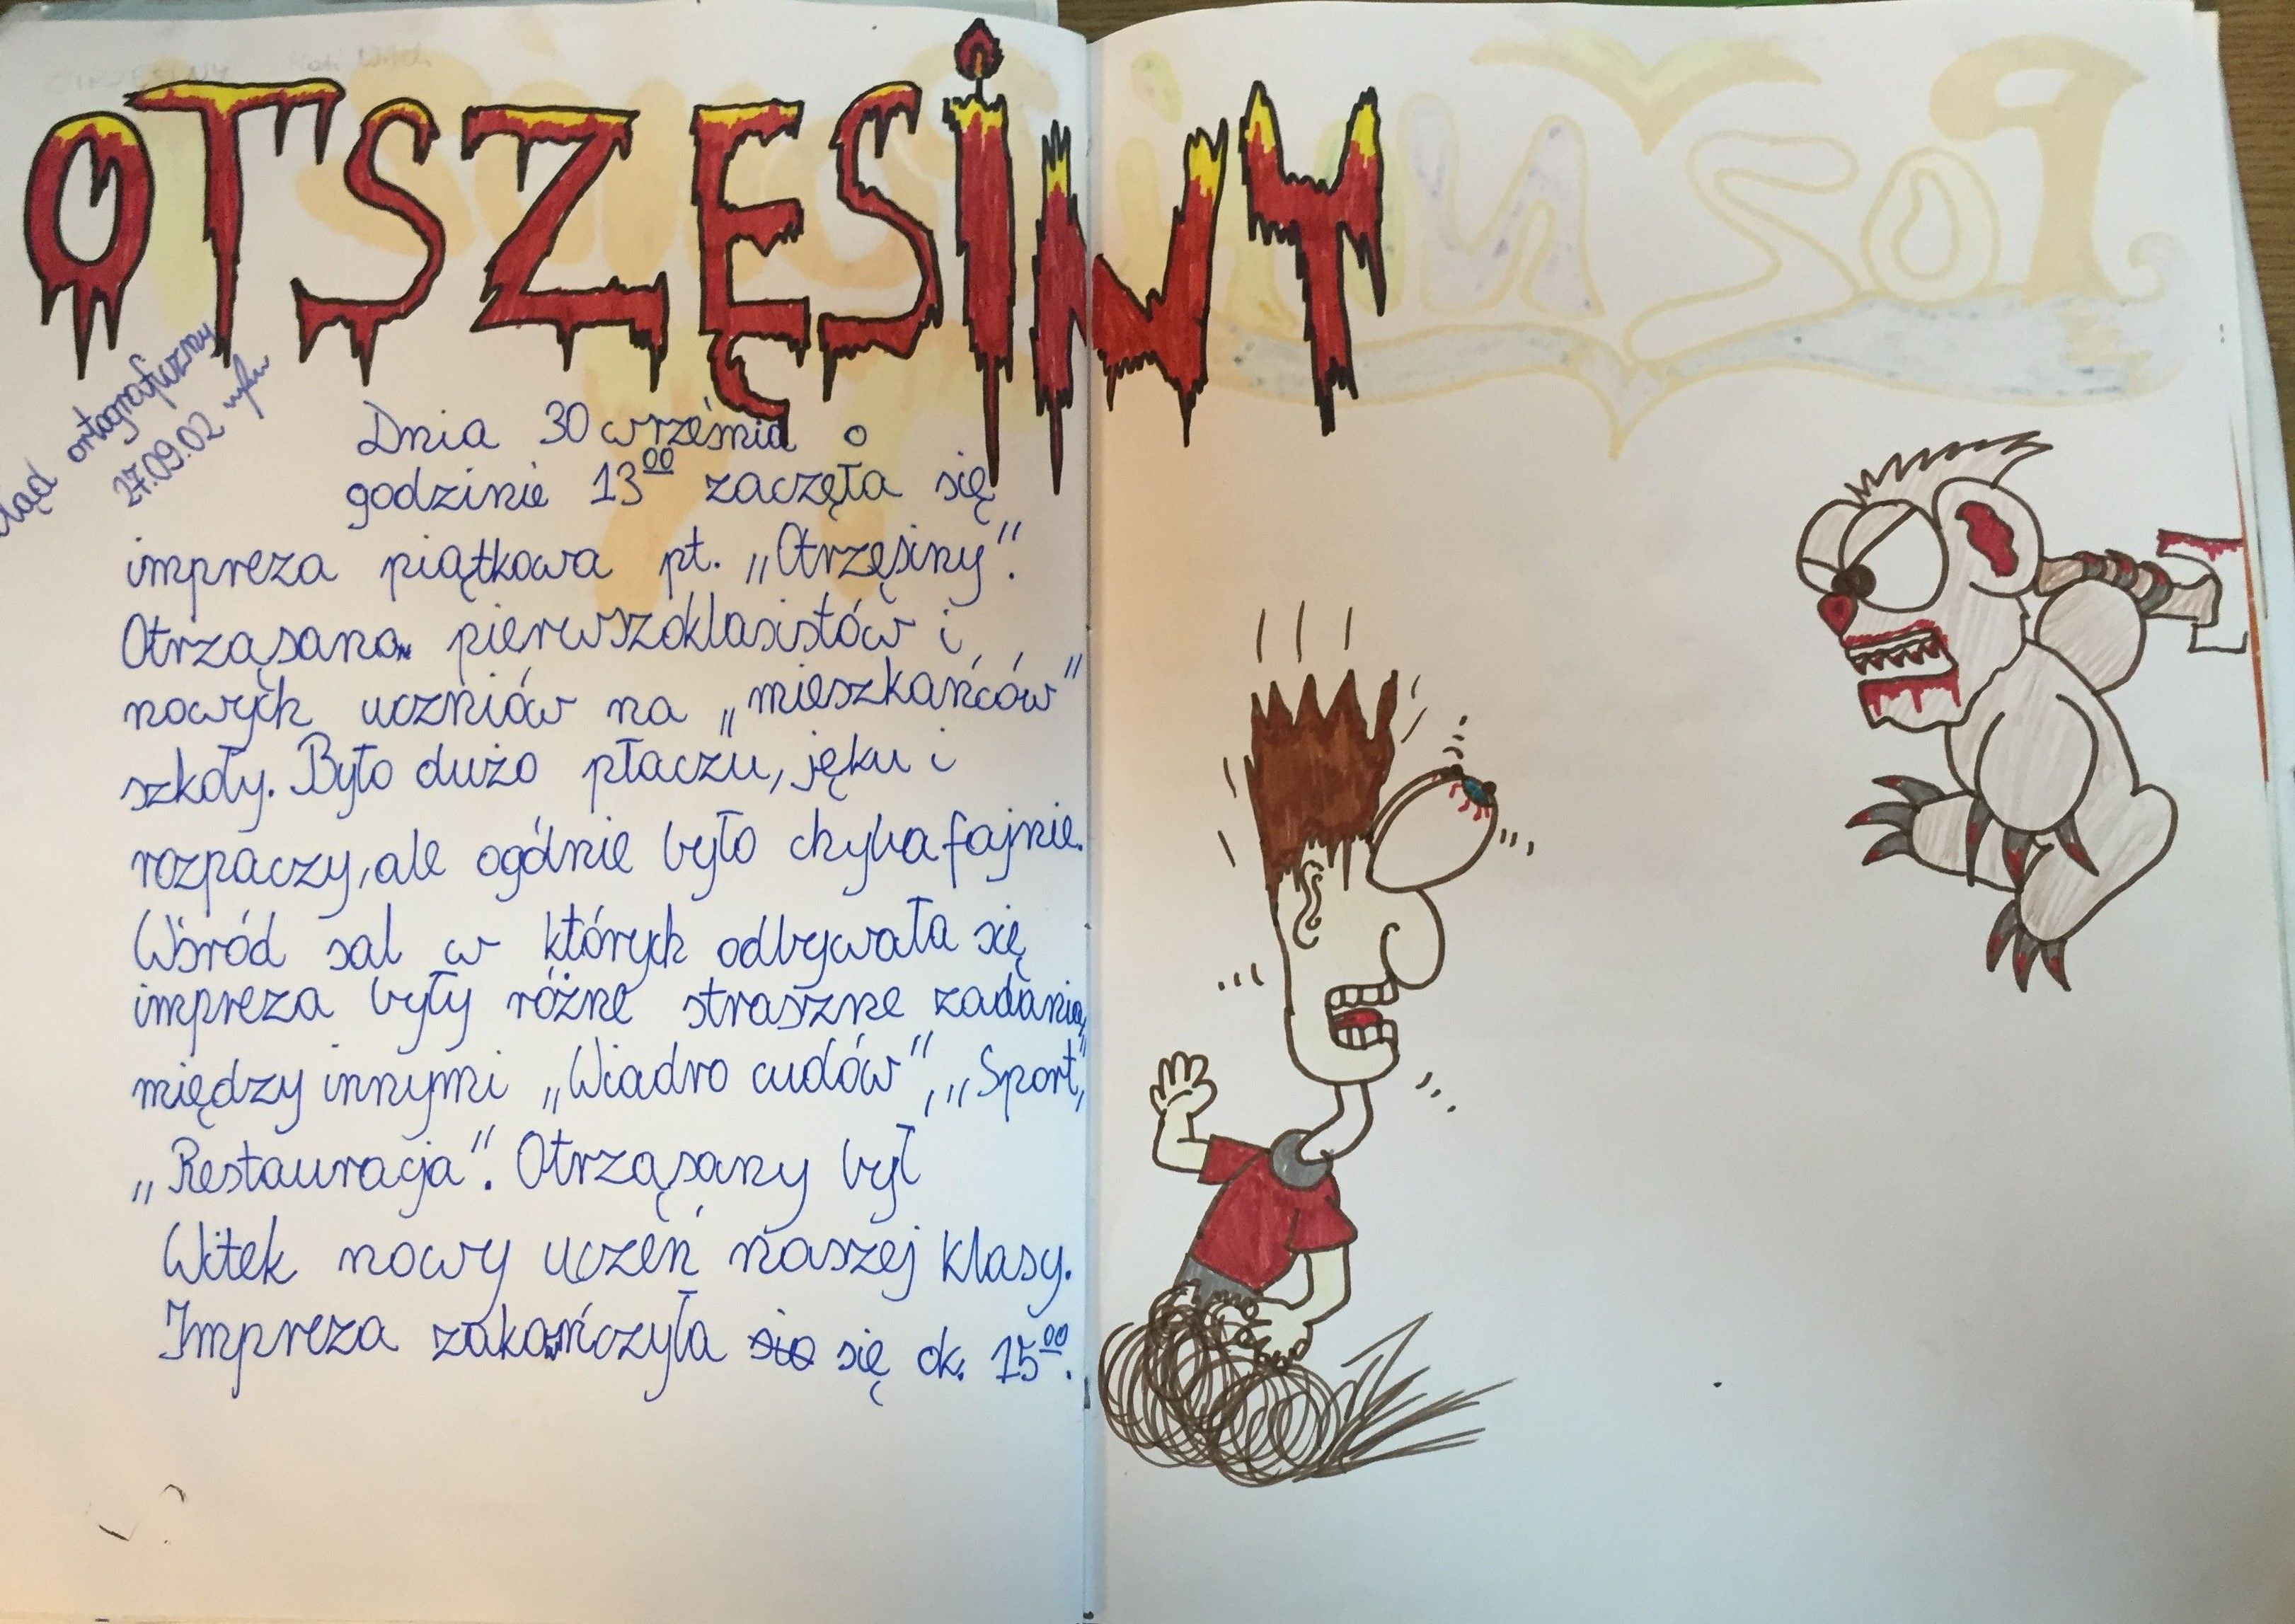 OTSZĘSINY
ortograficzny
27.09.02
Dnia 30 września o
godzinie 13⁰⁰ zaczęła się
impreza piątkowa pt. „Otrzęsiny".
Otrząsano pierwszoklasistów i
nowych uczniów na „mieszkańców"
szkoły. Było dużo płaczu, jęku i
rozpaczy, ale ogólnie było chyba fajnie.
Wśród sal w których odbywała się
impreza były różne straszne zadania,
między innymi „Wiadro cudów", „Sport",
„Restauracja". Otrząsany był
Witek nowy uczeń naszej klasy.
Impreza zakończyła się ok. 15⁰⁰.